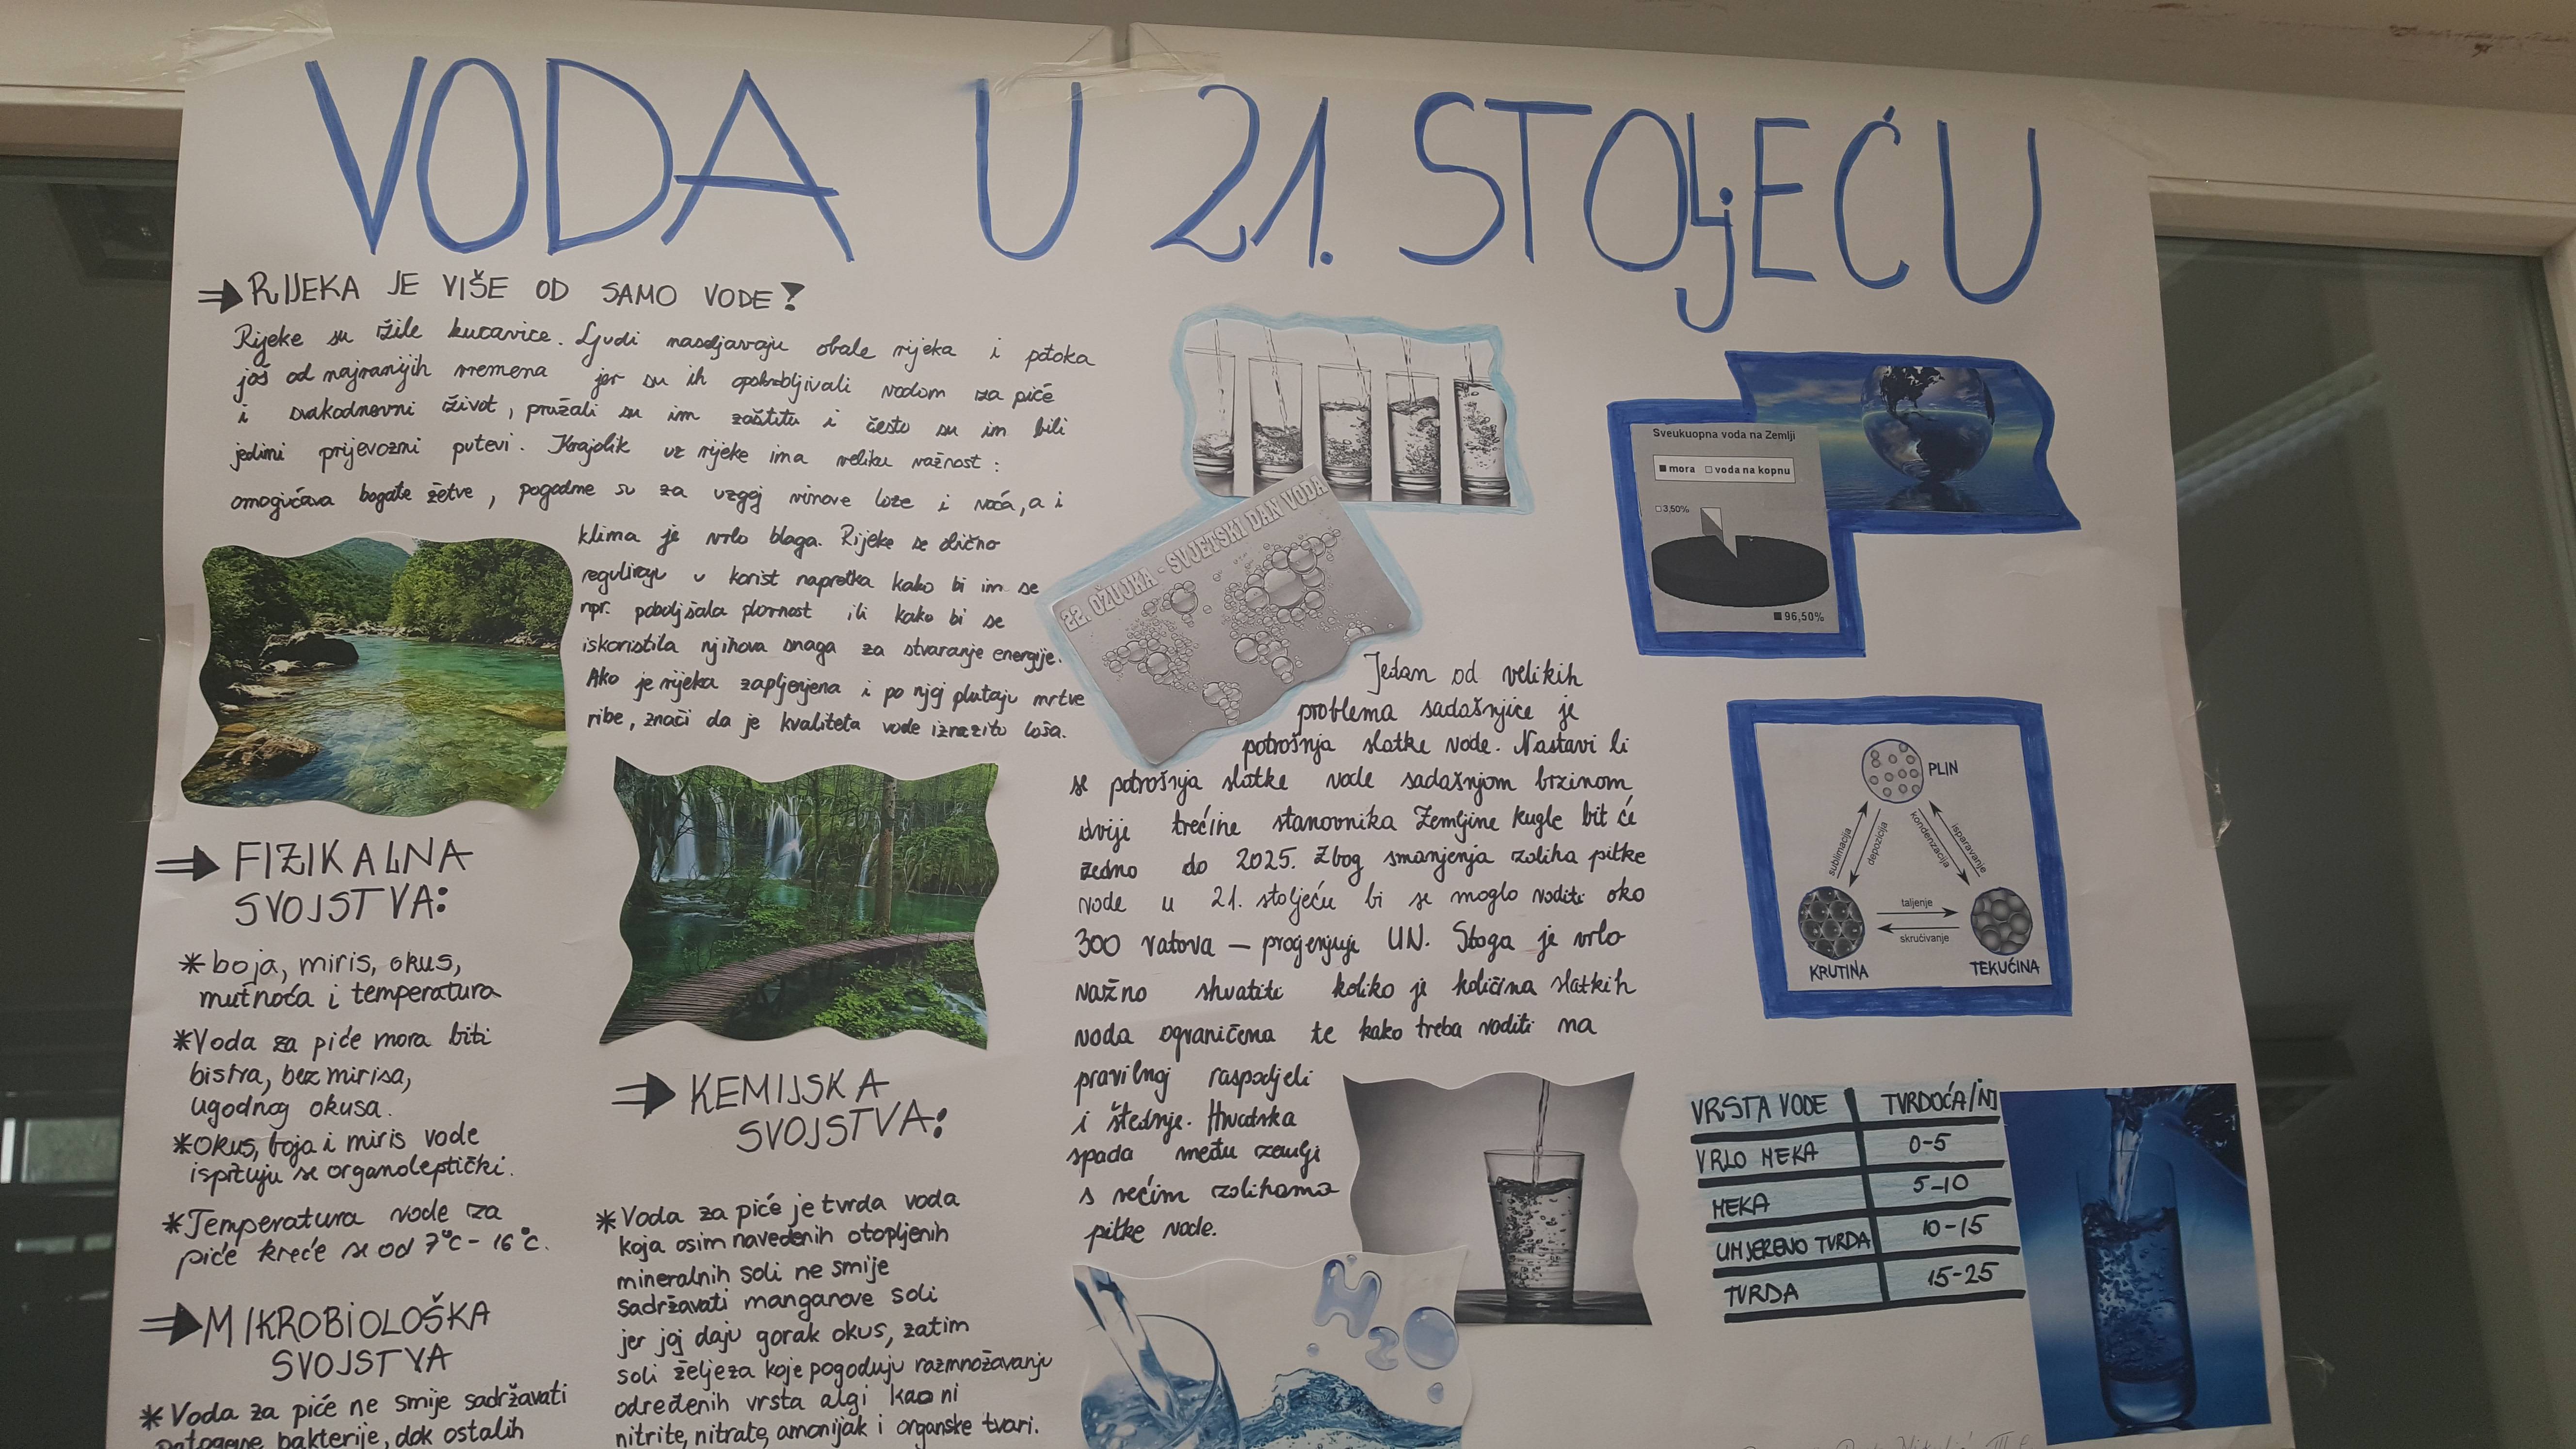 VODA U 21. STOLJEĆU
⇒ RIJEKA JE VIŠE OD SAMO VODE?
Rijeke su žile kucavice. Ljudi naseljavaju obale rijeka i potoka
još od najranijih vremena jer su ih opskrbljivali vodom za piće
i svakodnevni život, pružali su im zaštitu i često su im bili
jedini prijevozni putevi. Krajolik uz rijeke ima veliku važnost:
omogućava bogate žetve, pogodne su za uzgoj vinove loze i voća, a i
klima je vrlo blaga. Rijeke se slično
reguliraju u korist napretka kako bi im se
npr. poboljšala plovnost ili kako bi se
iskoristila njihova snaga za stvaranje energije.
Ako je rijeka zapljenjena i po njoj plutaju mrtve
ribe, znači da je kvaliteta vode izrazito loša.
⇒ FIZIKALNA
SVOJSTVA:
* boja, miris, okus,
mutnoća i temperatura
* Voda za piće mora biti
bistra, bez mirisa,
ugodnog okusa.
* Okus, boja i miris vode
ispituju se organoleptički.
* Temperatura vode za
piće kreće se od 7°C - 16°C.
⇒ MIKROBIOLOŠKA
SVOJSTVA
* Voda za piće ne smije sadržavati
patogene bakterije, dok ostalih
⇒ KEMIJSKA
SVOJSTVA:
* Voda za piće je tvrda voda
koja osim navedenih otopljenih
mineralnih soli ne smije
sadržavati manganove soli
jer joj daju gorak okus, zatim
soli željeza koje pogoduju razmnožavanju
određenih vrsta algi kao ni
nitrite, nitrate, amonijak i organske tvari.
22. OŽUJKA - SVJETSKI DAN VODA
Jedan od velikih
problema sadašnjice je
potrošnja slatke vode. Nastavi li
se potrošnja slatke vode sadašnjom brzinom
dvije trećine stanovnika Zemljine kugle bit će
žedno do 2025. Zbog smanjenja zaliha pitke
vode u 21. stoljeću bi se moglo voditi oko
300 ratova – procjenjuje UN. Stoga je vrlo
važno shvatiti koliko je količina slatkih
voda ograničena te kako treba voditi na
pravilnoj raspodjeli
i štednje. Hrvatska
spada među zemlje
s većim zalihama
pitke vode.
H2O
Sveukuopna voda na Zemlji
mora voda na kopnu
3,50%
96,50%
PLIN
sublimacija
depozicija
kondenzacija
isparavanje
taljenje
skrućivanje
KRUTINA
TEKUĆINA
VRSTA VODE TVRDOĆA/NJ
VRLO MEKA 0-5
MEKA 5-10
UMJERENO TVRDA 10-15
TVRDA 15-25